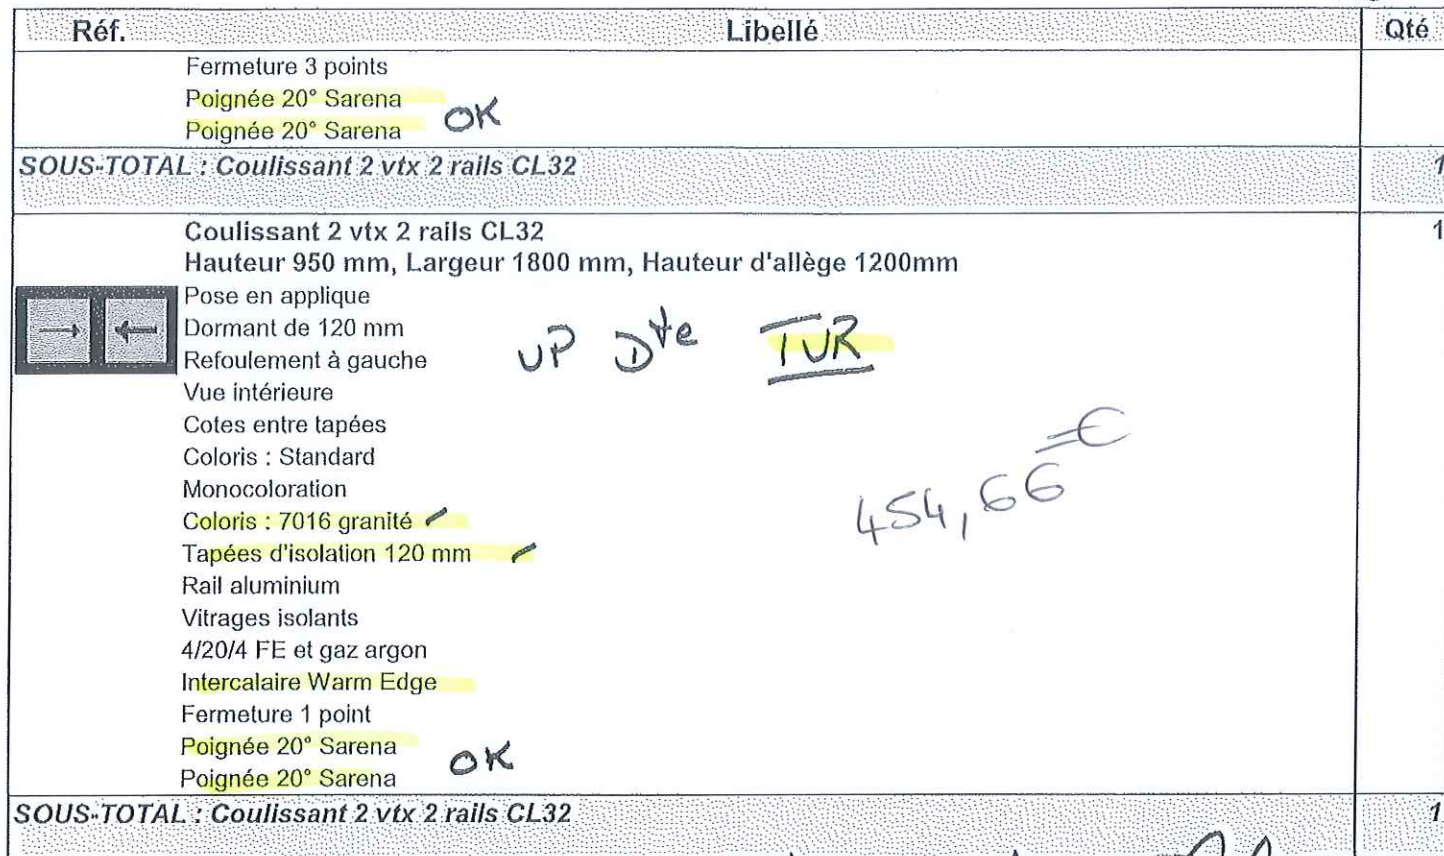 Réf. Libellé Qté
Fermeture 3 points
Poignée 20° Sarena
OK
Poignée 20° Sarena
SOUS-TOTAL : Coulissant 2 vtx 2 rails CL32 1
Coulissant 2 vtx 2 rails CL32 1
Hauteur 950 mm, Largeur 1800 mm, Hauteur d'allège 1200mm
Pose en applique
Dormant de 120 mm
UP Dte TVR
Refoulement à gauche
Vue intérieure
Cotes entre tapées
Coloris : Standard
Monocoloration
454,66 €
Coloris : 7016 granité
Tapées d'isolation 120 mm
Rail aluminium
Vitrages isolants
4/20/4 FE et gaz argon
Intercalaire Warm Edge
Fermeture 1 point
Poignée 20° Sarena
OK
Poignée 20° Sarena
SOUS-TOTAL : Coulissant 2 vtx 2 rails CL32 1